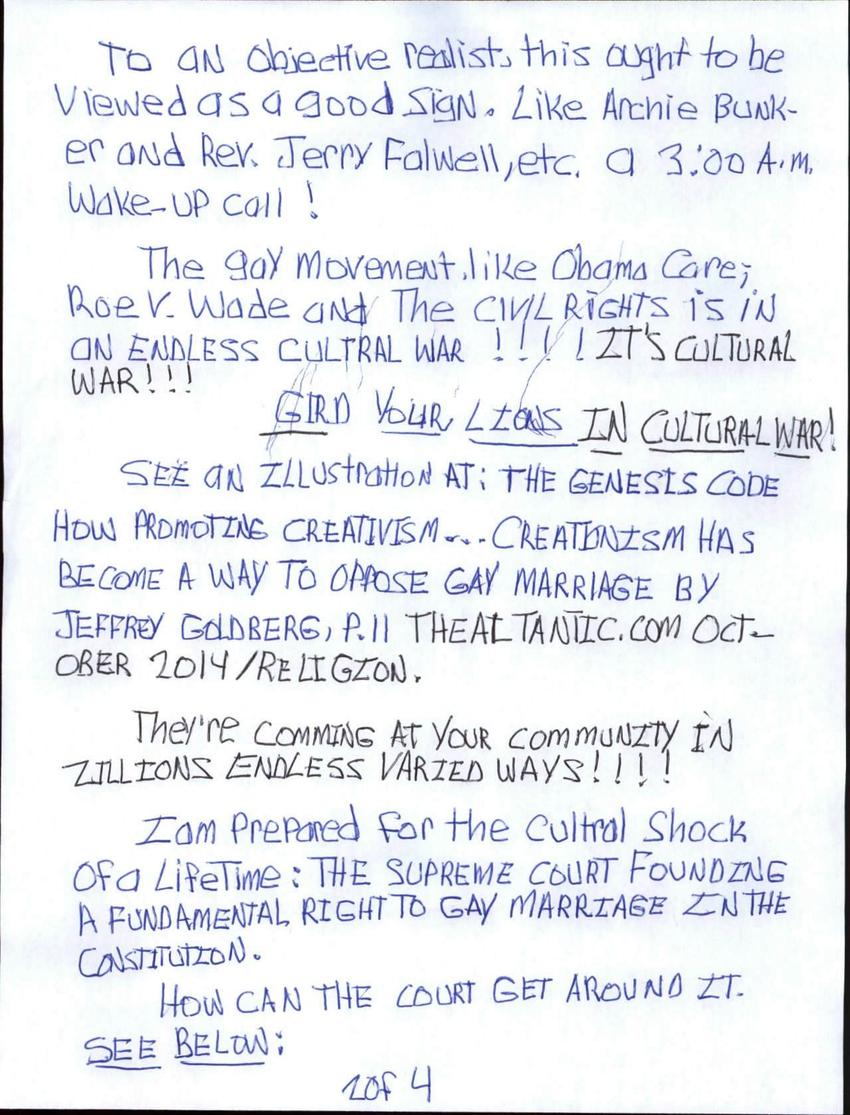 To an objective realist, this ought to be
Viewed as a good Sign. Like Archie BUNK-
er and Rev. Jerry Falwell, etc. a 3:00 A.m.
Wake-up call !
The gay Movement, like Obama Care;
Roe V. Wade and The CIVIL RIGHTS is in
an ENDLESS CULTRAL WAR !!!! IT'S CULTURAL
WAR!!!
GIRD YOUR LIONS IN CULTURAL WAR!
SEE an ILLUStration AT: THE GENESIS CODE
HOW PROMOTING CREATIVISM.... CREATIONISM HAS
BECOME A WAY TO OPPOSE GAY MARRIAGE BY
JEFFREY GOLDBERG, P.11 THEALTANTIC.COM OCT-
OBER 2014/RELIGION.
They're COMMING AT YOUR COMMUNITY IN
ZILLIONS ENDLESS VARIED WAYS!!!!
I am Prepared for the Cultral Shock
Of a LifeTime: THE SUPREME COURT FOUNDING
A FUNDAMENTAL RIGHT TO GAY MARRIAGE IN THE
CONSTITUTION.
HOW CAN THE COURT GET AROUND IT.
SEE BELOW:
2 of 4